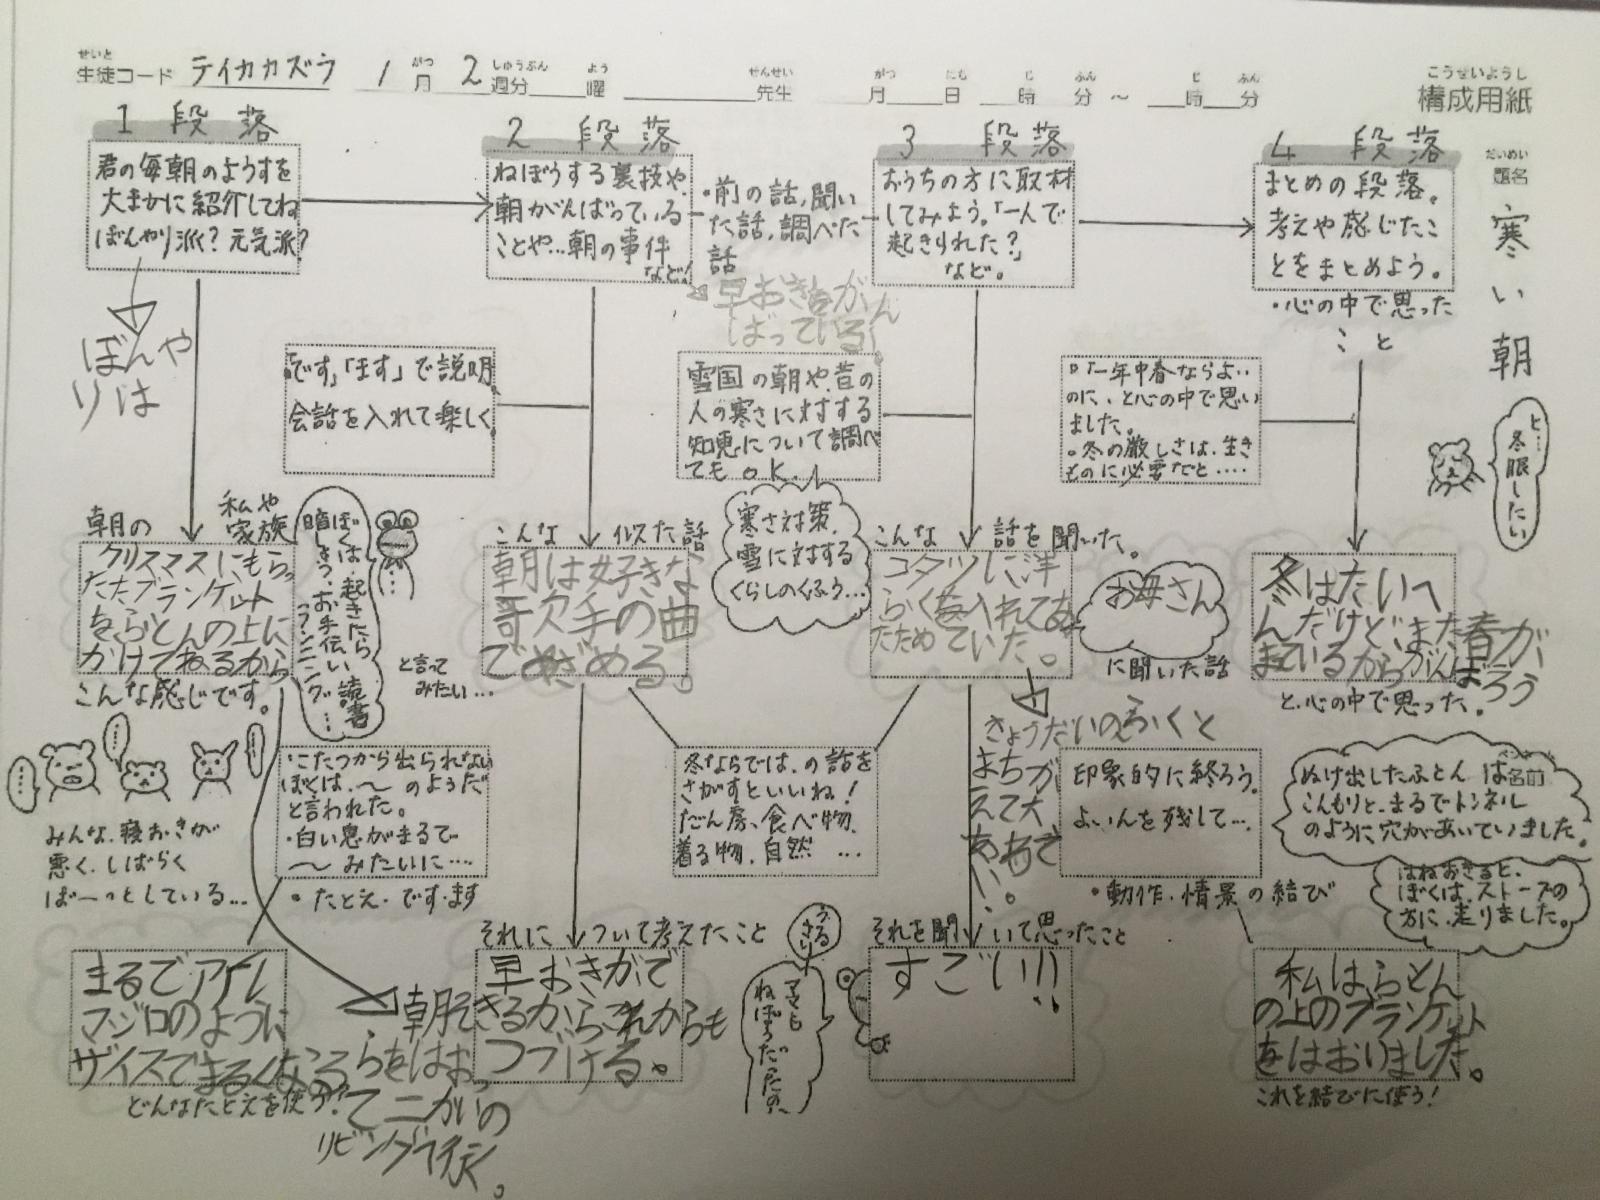 せいと
生徒コード テイカカズラ 1月 2週分 曜 先生 月 日 時 分 ～ 時 分
がつ しゅうぶん よう せんせい がつ にち じ ふん じ ふん
こうせいようし
構成用紙
だいめい
題名
寒い朝
と…
冬眠したい
1 段落
君の毎朝のようすを
大まかに紹介してね
ぼんやり派？元気派？
ぼんや
りは
「です」「ます」で説明
会話を入れて楽しく
朝の 私や
家族
クリスマスにもらっ
たブランケット
をふとんの上に
かけてねるから
こんな感じです。
ぼくは、起きたら
暗しょう、お手伝い、読書
ランニング…
と言って
みたい…
みんな、寝おきが
悪く、しばらく
ばーっとしている…
・こたつから出られない
ぼくは、～のようだ
と言われた。
・白い息がまるで
～みたいに…
・たとえ・です・ます
まるでアルし
マジロのように
どんなたとえを使う？
朝そ
らをはおっ
て二かいの
リビングへ行く。
2 段落
ねぼうする裏技や、
朝がんばっている
ことや…朝の事件
など！
・前の話、聞い
た話、調べた
話
早おきをがん
ばっている！
雪国の朝や、昔の
人の寒さに対する
知恵について調べ
てもOK。
寒さ対策、
雪に対する
くらしのくふう…
こんな 似た話
朝は好きな
歌手の曲
でめざめる。
冬ならでは、の話を
さがすといいね！
だん房、食べ物、
着る物、自然 …
それについて考えたこと
早おきがで
きるからこれからも
つづける。
うるさい
ママも
ねぼうだったの、
3 段落
おうちの方に取材
してみよう。「一人で
起きられた？」
など。
こんな 話を聞いた。
コタツに洋
ふくを入れてあ
たためていた。
お母さん
に聞いた話
きょうだいのふくと
まちが
えて大
あわて
!!。
それを聞いて思ったこと
すごい!!
4 段落
まとめの段落。
考えや感じたこ
とをまとめよう。
・心の中で思った
こと
。「一年中春ならよい
のに、と心の中で思い
ました。
。冬の厳しさは、生き
ものに必要だと‥‥
冬はたいへ
んだけど、また春が
まっているからがんばろう
と、心の中で思った。
印象的に終ろう。
よいんを残して…、
・動作・情景の結び
ぬけ出したふとん は名前
こんもりと、まるでトンネル
のように、穴があいていました。
はねおきると、
ぼくは、ストーブの
方に、走りました。
私はふとん
の上のブランケット
をはおりました。
これを結びに使う！